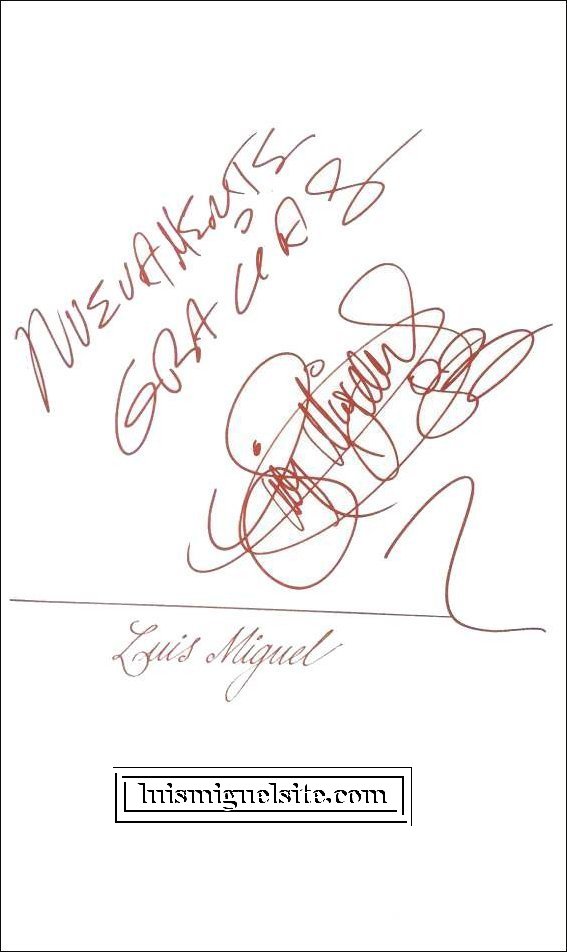 NUEVAMENTE
GRACIAS
Luis Miguel
luismiguelsite.com